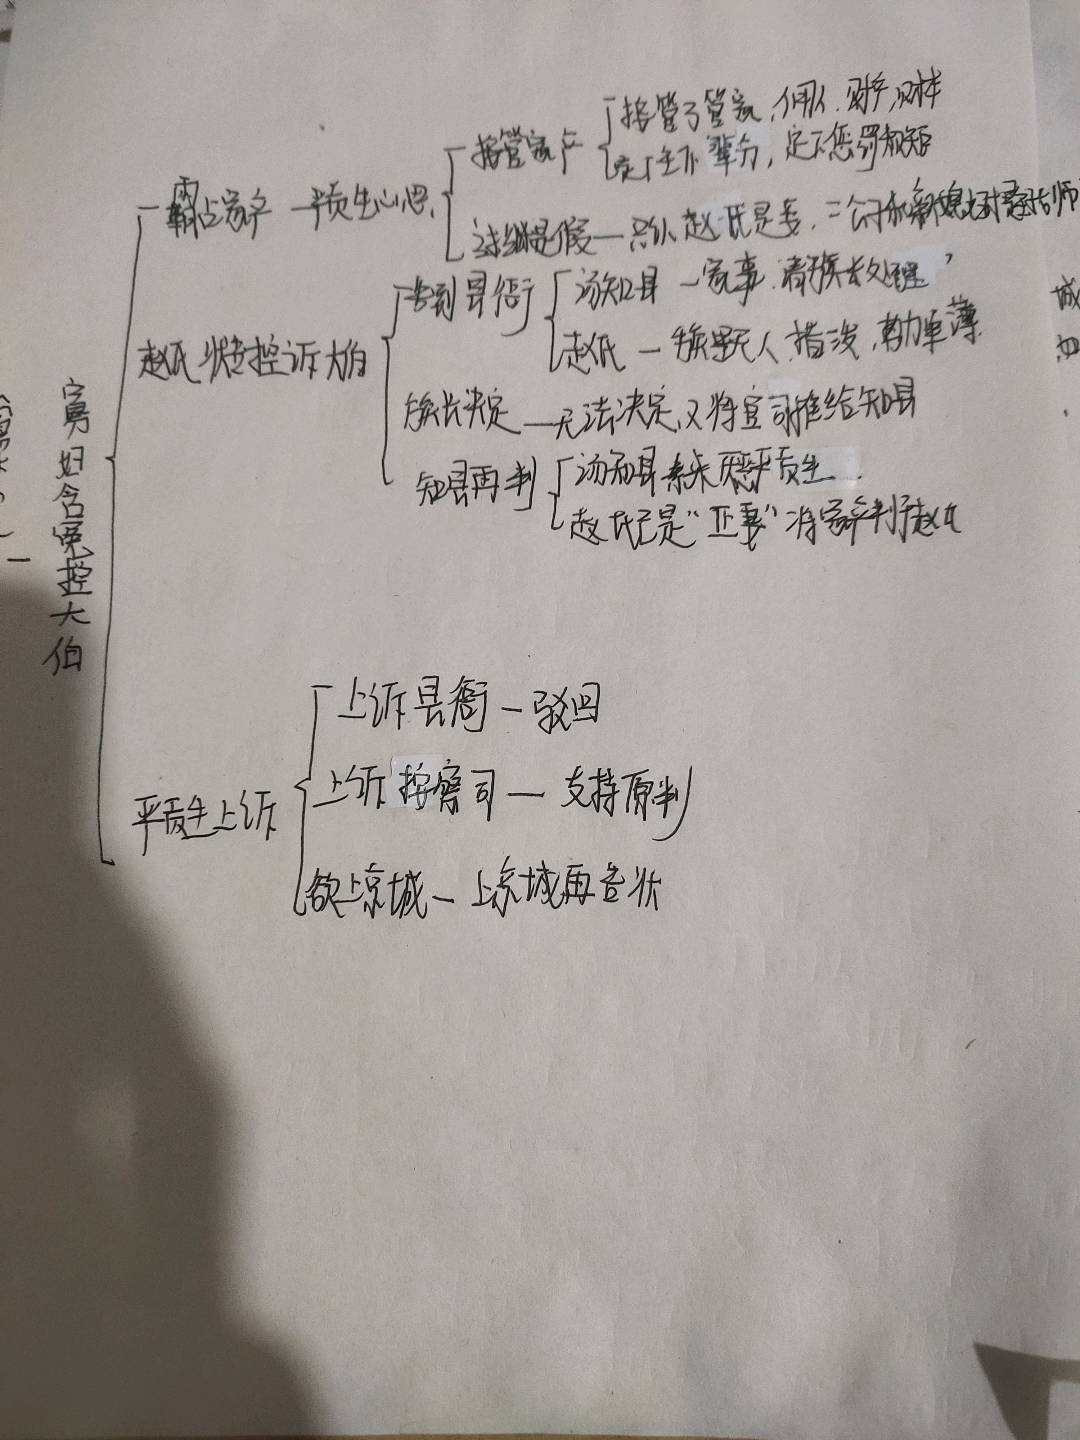 霸占家产 一 严贡生心思
接管家产
接管了管家,佣人,财产,田样
定下主下辈分,定下惩罚规矩
过继是假一只认赵氏是妾,二公子和新媳
赵氏状控诉大伯
告到县衙
汤知县 一 家事,请族长处理
赵氏 一 族里无人,势力单薄
族长决定 一 无法决定,又将官司推给知县
知县再判
汤知县素来厌恶严贡生
赵氏已是“正妻”将家产判于赵氏
寡妇含冤控大伯
严贡生上诉
上诉县衙 一 驳回
上诉按察司 一 支持原判
欲上京城 一 上京城再告状
城